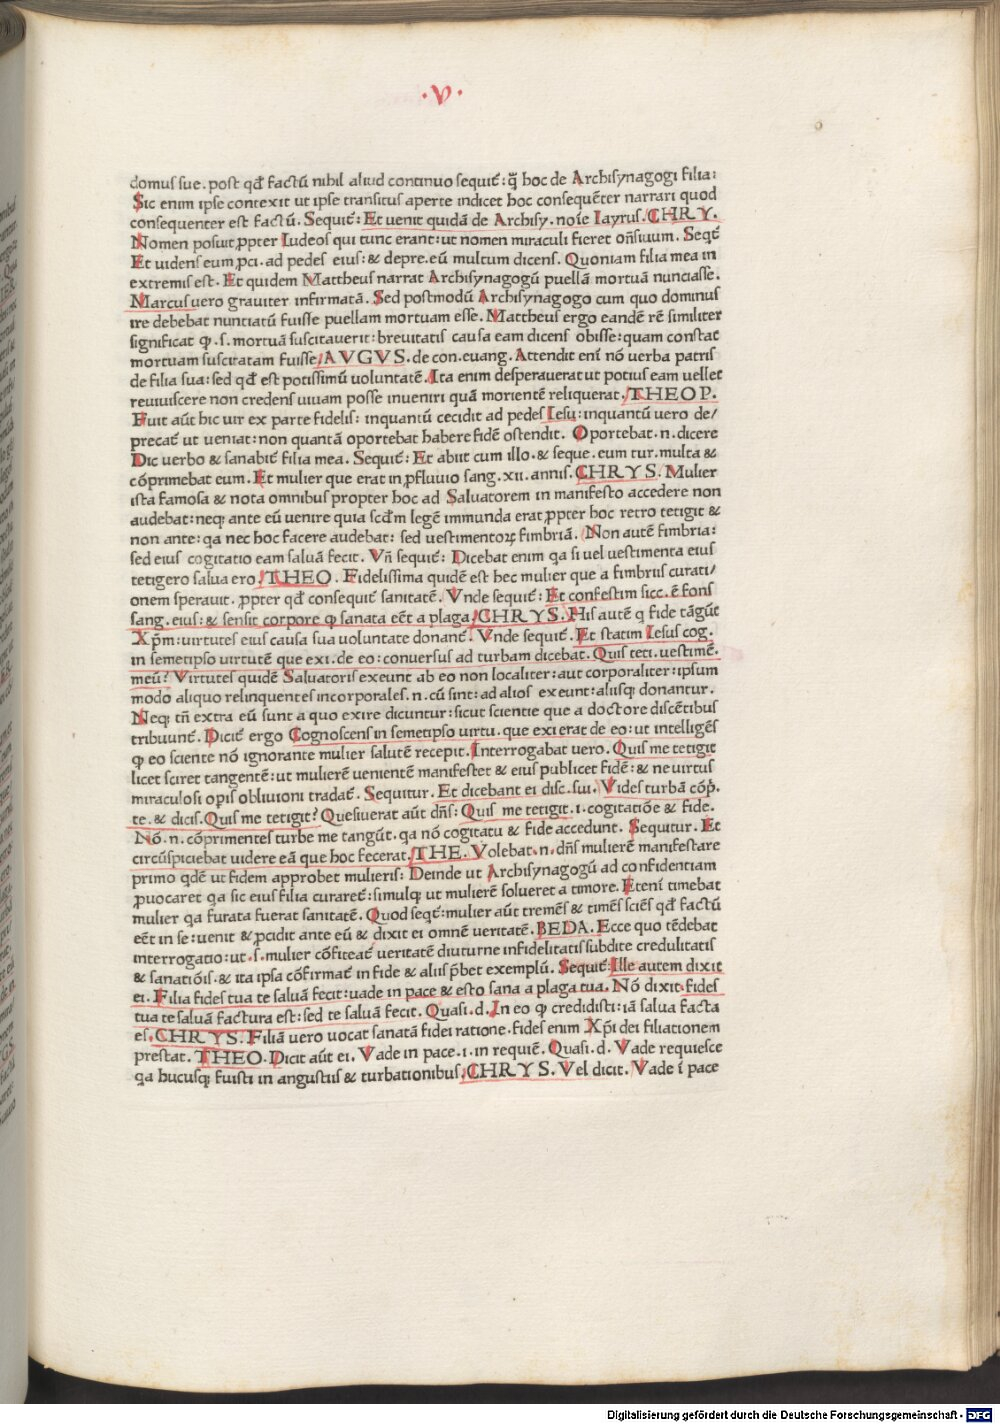 ·V·
domus sue. post qđ factū nihil aliud continuo sequit̄: q̄ hoc de Archisynagogi filia:
Sic enim ipse contexit ut ipse transitus aperte indicet hoc consequēter narrari quod
consequenter est factū. Sequit̄: Et uenit quidā de Archisy. noīe Iayrus. CHRY.
Nomen posuit ꝓpter Iudeos qui tunc erant: ut nomen miraculi fieret oñsiuum. Seqt̄
Et uidens eum ꝓci. ad pedes eius: & depre. eū multum dicens. Quoniam filia mea in
extremis est. Et quidem Mattheus narrat Archisynagogū puellā mortuā nunciasse.
Marcus uero grauiter infirmatā. Sed postmodū Archisynagogo cum quo dominus
ire debebat nunciatū fuisse puellam mortuam esse. Mattheus ergo eandē rē similiter
significat ꝙ .s. mortuā suscitauerit: breuitatis causa eam dicens obisse: quam constat
mortuam suscitatam fuisse. AVGVS. de con. euang. Attendit eni nō uerba patris
de filia sua: sed qđ est potissimū uoluntatē. Ita enim desperauerat ut potius eam uellet
reuiuiscere non credens uiuam posse inueniri quā morientē reliquerat. THEOP.
Fuit aūt hic uir ex parte fidelis: inquantū cecidit ad pedes Iesu: inquantū uero de/
precat̄ ut ueniat: non quantā oportebat habere fidē ostendit. Oportebat .n. dicere
Dic uerbo & sanabit̄ filia mea. Sequit̄: Et abiit cum illo. & seque. eum tur. multa &
cōprimebat eum. Et mulier que erat in ꝓfluuio sang. xii. annis. CHRYS. Mulier
ista famosa & nota omnibus propter hoc ad Saluatorem in manifesto accedere non
audebat: neqꝫ ante eū uenire quia scđm legē immunda erat ꝓpter hoc retro tetigit &
non ante: qa nec hoc facere audebat: sed uestimentoꝝ fimbriā. Non autē fimbria:
sed eius cogitatio eam saluā fecit. Vñ sequit̄: Dicebat enim qa si uel uestimenta eius
tetigero salua ero. THEO. Fidelissima quidē est hec mulier que a fimbriis curati/
onem sperauit. ꝓpter qđ consequit̄ sanitatē. Vnde sequit̄: Et confestim sicc. ē fons
sang. eius: & sensit corpore ꝙ sanata eēt a plaga. CHRYS. His autē q fide tāgūt
Xp̄m: uirtutes eius causa sua uoluntate donant̄. Vnde sequit̄. Et statim Iesus cog.
in semetipso uirtutē que exi. de eo: conuersus ad turbam dicebat. Quis teti. uestimē.
meū? Virtutes quidē Saluatoris exeunt ab eo non localiter: aut corporaliter: ipsum
modo aliquo relinquentes incorporales .n. cū sint: ad alios exeunt: aliisqꝫ donantur.
Neqꝫ tñ extra eū sunt a quo exire dicuntur: sicut scientie que a doctore discētibus
tribuunt̄. Dicit̄ ergo Cognoscens in semetipso uirtu. que exierat de eo: ut intelligēs
ꝙ eo sciente nō ignorante mulier salutē recepit. Interrogabat uero. Quis me tetigit
licet sciret tangentē: ut mulierē uenientē manifestet & eius publicet fidē: & ne uirtus
miraculosi opis obliuioni tradat̄. Sequitur. Et dicebant ei disc. sui. Vides turbā cōp̄.
te. & dicis. Quis me tetigit? Quesiuerat aūt dñs: Quis me tetigit .i. cogitatiōe & fide.
Nō .n. cōprimentes turbe me tangūt. qa nō cogitatu & fide accedunt. Sequitur. Et
circūspiciebat uidere eā que hoc fecerat. THE. Volebat .n. dñs mulierē manifestare
primo qdē ut fidem approbet mulieris: Deinde ut Archisynagogū ad confidentiam
ꝓuocaret qa sic eius filia curaret̄: simulqꝫ ut mulierē solueret a timore. Eteni timebat
mulier qa furata fuerat sanitatē. Quod seqt̄: mulier aūt tremēs & timēs sciēs qđ factū
eēt in se: uenit & ꝓcidit ante eū & dixit ei omnē ueritatē. BEDA. Ecce quo tēdebat
interrogatio: ut .s. mulier cōfiteat̄ ueritatē diuturne infidelitatis subdite credulitatis
& sanatiōis. & ita ipsa cōfirmat̄ in fide & aliis p̄bet exemplū. Sequit̄: Ille autem dixit
ei. Filia fides tua te saluā fecit: uade in pace & esto sana a plaga tua. Nō dixit fides
tua te saluā factura est: sed te saluā fecit. Quasi .d. In eo ꝙ credidisti: iā salua facta
es. CHRYS. Filiā uero uocat sanatā fidei ratione. fides enim Xp̄i dei filiationem
prestat. THEO. Dicit aūt ei. Vade in pace .i. in requiē. Quasi .d. Vade requiesce
qa hucusqꝫ fuisti in angustiis & turbationibus. CHRYS. Vel dicit. Vade ī pace
Digitalisierung gefördert durch die Deutsche Forschungsgemeinschaft - DFG